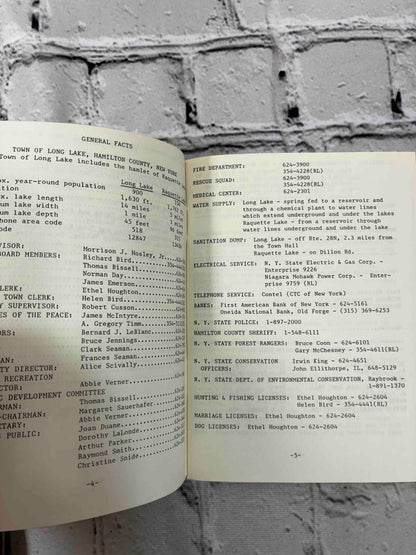 GENERAL FACTS
TOWN OF LONG LAKE, HAMILTON COUNTY, NEW YORK
Town of Long Lake includes the hamlet of Raquette
Long Lake
year-round population 900
elevation 1,630 ft.
lake length 14 mile
lake width 1 mile
lake depth 45 feet
phone area code 518
code 12847
Morrison J. Hosley, Jr.
BOARD MEMBERS: Richard Bird
Thomas Bissell
Norman Day
James Emerson
Ethel Houghton
TOWN CLERK: Helen Bird
SUPERVISOR: Robert Cusson
OF THE PEACE: James McIntyre
A. Gregory Timm
Bernard J. LeBlanc
Bruce Jennings
Clark Seaman
Frances Seaman
DIRECTOR: Alice Scivally
RECREATION
Abbie Verner
DEVELOPMENT COMMITTEE
Thomas Bissell
Margaret Sauerhafer
Abbie Verner
Joan Duane
PUBLIC: Dorothy LaLonde
Arthur Parker
Raymond Smith
Christine Snide
-4-
FIRE DEPARTMENT: 624-3900
354-4228(RL)
RESCUE SQUAD: 624-3900
354-4228(RL)
MEDICAL CENTER: 624-2301
WATER SUPPLY: Long Lake - spring fed to a reservoir and
through a chemical plant to water lines
which extend underground and under the lakes
Raquette Lake - from a reservoir through
water lines underground and under the lake
SANITATION DUMP: Long Lake - off Rte. 28N, 2.3 miles from
the Town Hall
Raquette Lake - on Dillon Rd.
ELECTRICAL SERVICE: N. Y. State Electric & Gas Corp. -
Enterprise 9226
Niagara Mohawk Power Corp. - Enter-
prise 9759 (RL)
TELEPHONE SERVICE: Contel (CTC of New York)
BANKS: First American Bank of New York - 624-5161
Oneida National Bank, Old Forge - (315) 369-6253
N. Y. STATE POLICE: 1-897-2000
HAMILTON COUNTY SHERIFF: 1-548-6111
N. Y. STATE FOREST RANGERS: Bruce Coon - 624-6101
Gary McChesney - 354-4611(RL)
N. Y. STATE CONSERVATION Irwin King - 624-4651
OFFICERS: John Ellithorpe, Il, 648-5129
N. Y. STATE DEPT. OF ENVIRONMENTAL CONSERVATION, Raybrook -
1-891-1370
HUNTING & FISHING LICENSES: Ethel Houghton - 624-2604
Helen Bird - 354-4441(RL)
MARRIAGE LICENSES: Ethel Houghton - 624-2604
DOG LICENSES: Ethel Houghton - 624-2604
-5-